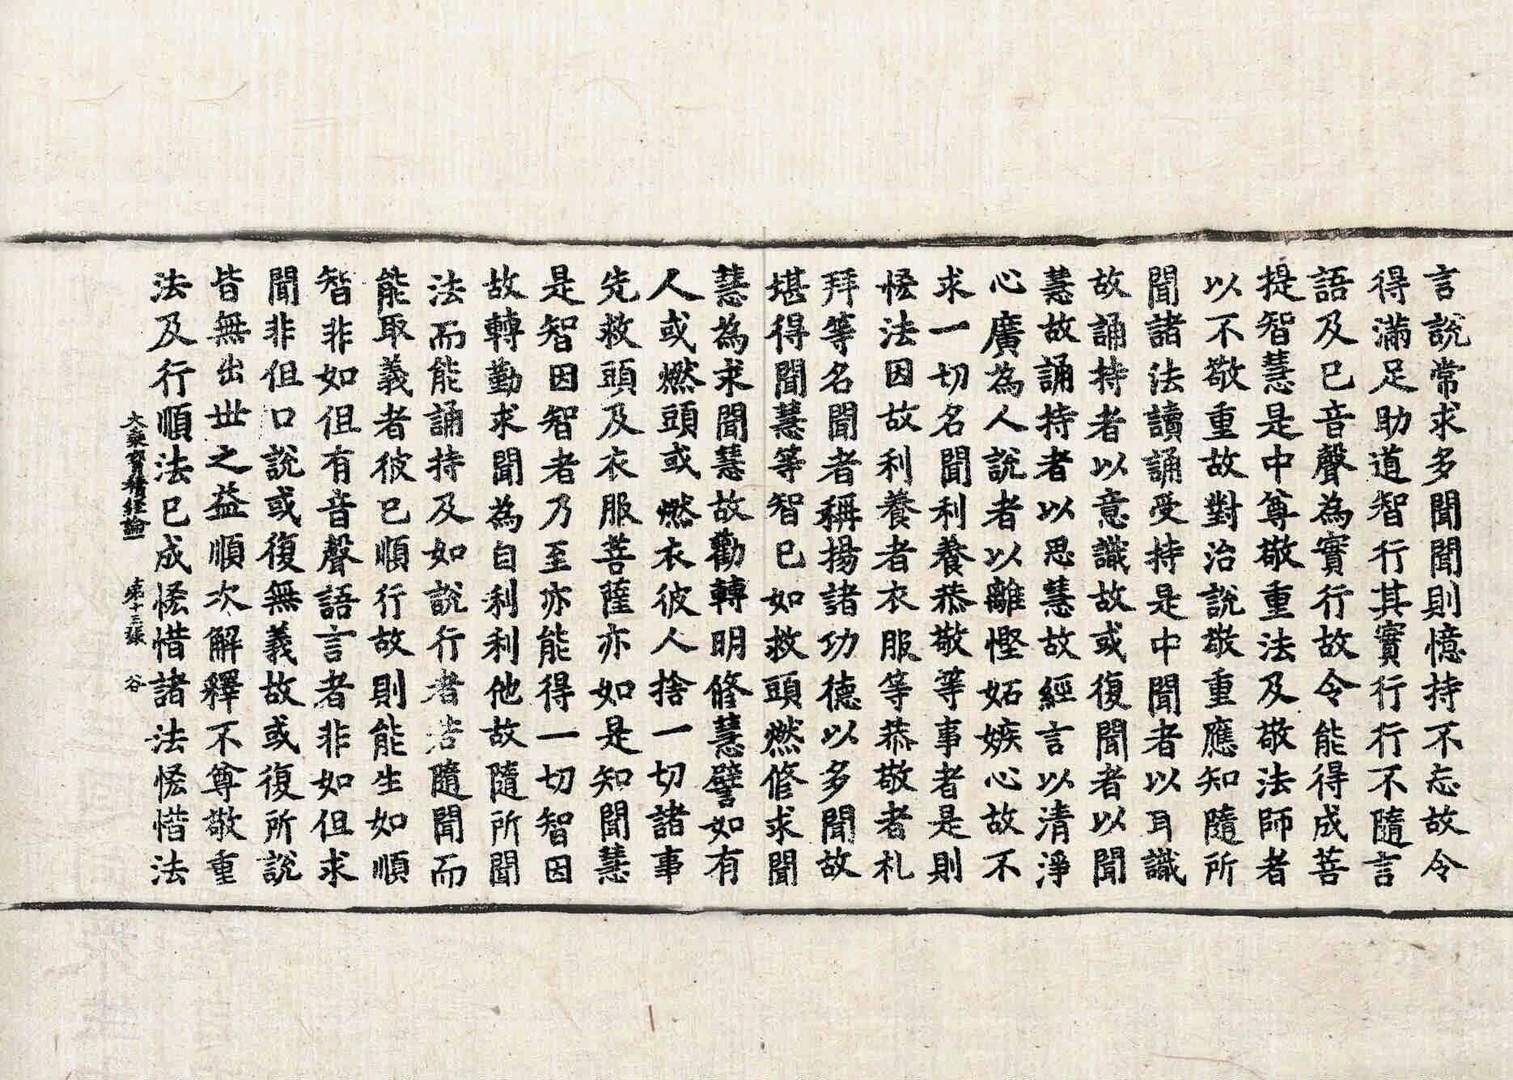 言說常求多聞聞則憶持不忘故令
得滿足助道智行其實行行不隨言
語及已音聲為實行故令能得成菩
提智慧是中尊敬重法及敬法師者
以不敬重故對治說敬重應知隨所
聞諸法讀誦受持是中聞者以耳識
故誦持者以意識故或復聞者以聞
慧故誦持者以思慧故經言以清淨
心廣為人說者以離慳妬嫉心故不
求一切名聞利養恭敬等事者是則
恡法因故利養者衣服等恭敬者礼
拜等名聞者稱揚諸功德以多聞故
堪得聞慧等智已如救頭燃修求聞
慧為求聞慧故勸轉明修慧譬如有
人或燃頭或燃衣彼人捨一切諸事
先救頭及衣服菩薩亦如是知聞慧
是智因智者乃至亦能得一切智因
故轉勤求聞為自利利他故隨所聞
法而能誦持及如說行者若隨聞而
能取義者彼已順行故則能生如順
智非如但有音聲語言者非如但求
聞非但口說或復無義故或復所說
皆無出世之益順次解釋不尊敬重
法及行順法已成恡惜諸法恡惜法
大乘寶積經論一 第十三張 谷